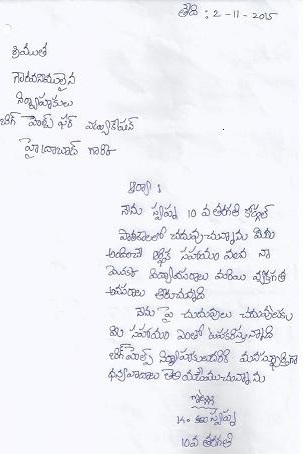 తేది : 2-11-2015
శ్రీయుత
గౌరవనీయులైన
నిర్వాహకులు
బిగ్ హెల్ప్ ఫర్ ఎడ్యుకేషన్
హైదరాబాద్ గారికి
ఆర్యా :
నేను స్వప్న 10 వ తరగతి
పాఠశాలలో చదువుచున్నాను మీరు
అందించే ఆర్థిక సహాయం వలన నా
యొక్క విద్యావసరాలు మరియు వ్యక్తిగత
అవసరాలు తీరుచున్నవి
నేను పై చదువులు చదువుటకు
మీ సహాయం ఎంతో ఉపకరిస్తున్నది
బిగ్ హెల్ప్ నిర్వాహకులందరికి మనస్ఫూర్తిగా
ధన్యవాదాలు తెలియజేయుచున్నాను
ఇట్లు
స్వప్న
10వ తరగతి